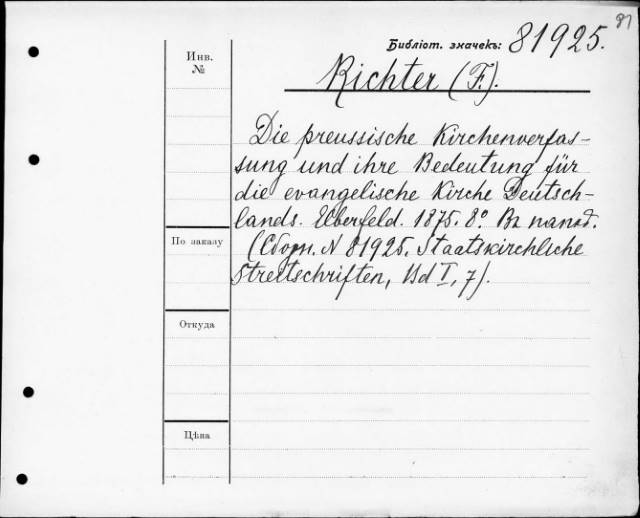 81
Библіот. значекъ: 81925.
Инв.
№
Richter (F.).
Die preussische Kirchenverfas-
sung und ihre Bedeutung für
die evangelische Kirche Deutsch-
lands. Elberfeld. 1875. 8°. Въ папкѣ.
По заказу
(Сборн. N 81925. Staatskirchliche
Streitschriften, Bd I, 7).
Откуда
Цѣна